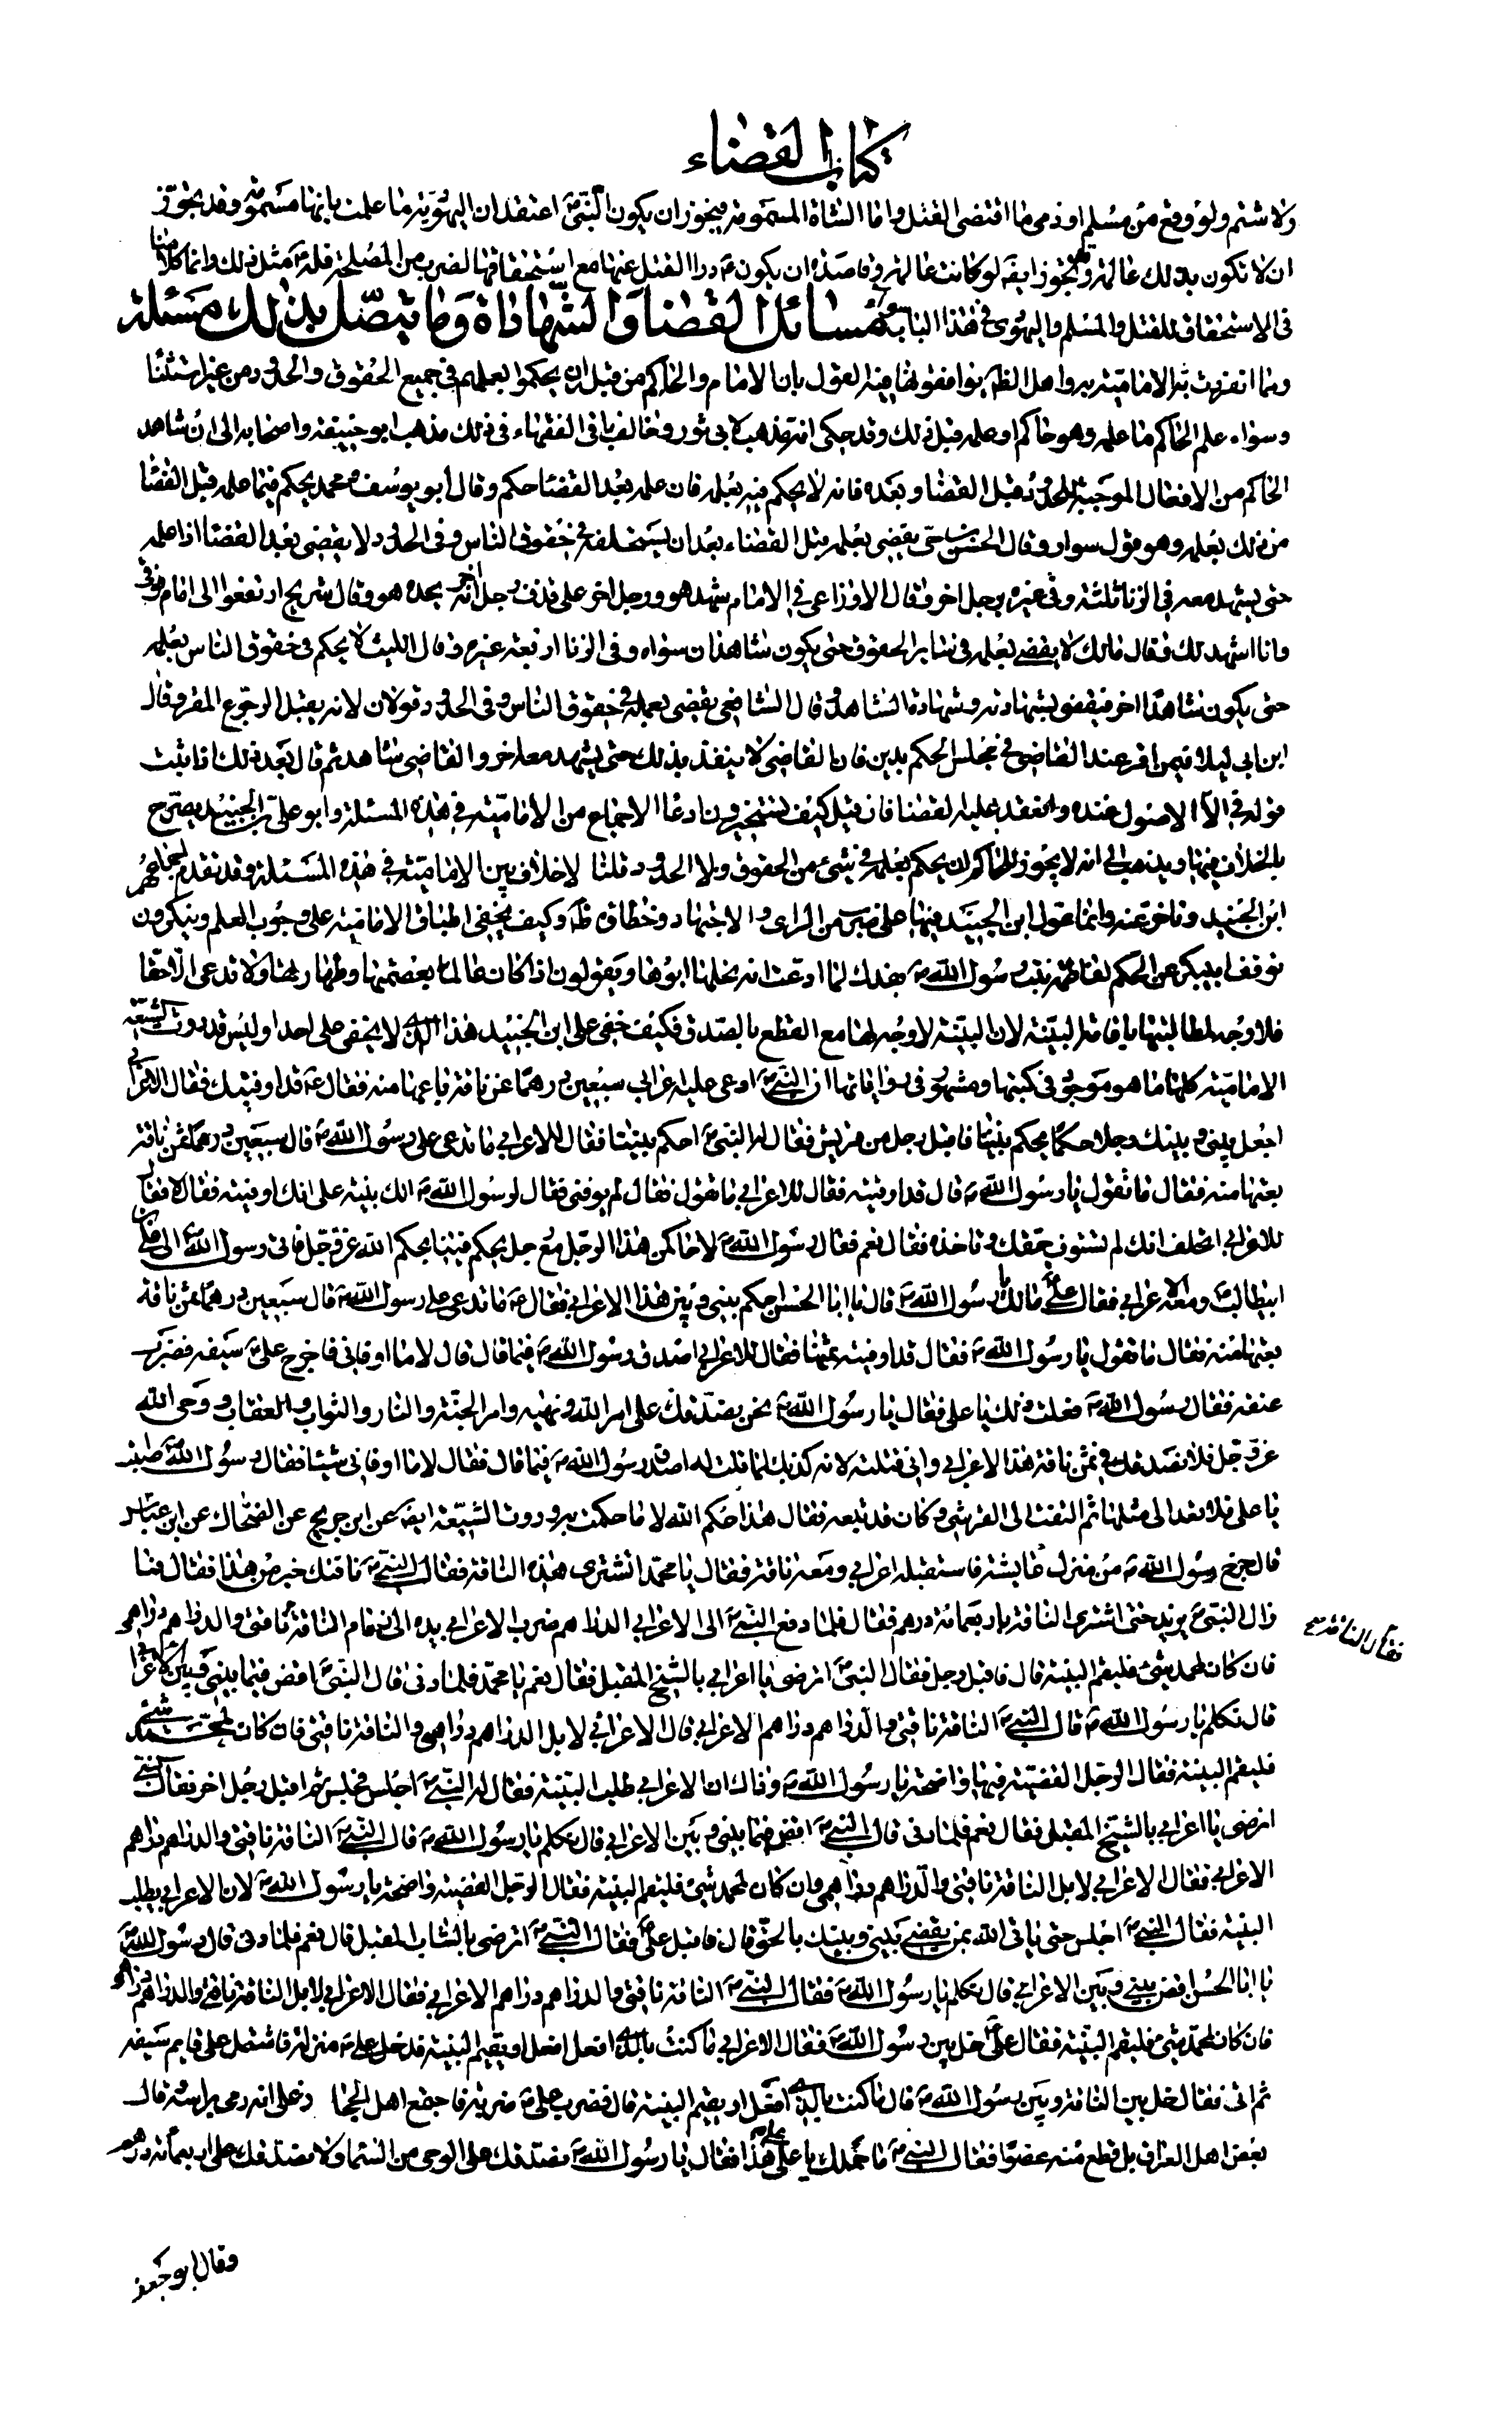 كتاب القضاء
ولا شتم ولو وقع من مسلم او ذمى ما اقتضى القتل واما الشاة المسمومة فيجوز ان يكون النبى ص اعتقد ان اليهودية ما علمت بانها مسمومة وقد يجوز
ان لا تكون بذلك عالمة ويجوز ايضا لو كانت عالمة وقاصدة ان يكون ع درا القتل عنها مع استحقاقها لضرب من المصلحة فله ع مثل ذلك وانما كلامنا
فى الاستحقاق للقتل والمسلم واليهودى فى هذا الباب سواء مسائل القضاء والشهادة وما يتصل بذلك مسئلة
ومما انفردت به الامامية واهل الظاهر يوافقونها فيه القول بان الامام والحاكم من قبله ان يحكموا بعلمهم فى جميع الحقوق والحدود من غير استثناء
وسواء علم الحاكم ما علمه وهو حاكم او علمه قبل ذلك وقد حكى انه مذهب لابى ثور وخالف باقى الفقهاء فى ذلك مذهب ابو حنيفة واصحابه الى ان شاهد
الحاكم من الافعال الموجبة للحدود قبل القضاء وبعده فانه لا يحكم فيه بعلمه فان علمه بعد القضاء حكم وقال أبو يوسف ومحمد يحكم فيما علمه قبل القضاء
من ذلك بعلمه وهو قول سوار وقال الحسن بن حى يقضى بعلمه قبل القضاء بعد ان يستحلفه فى حقوق الناس وفى الحدود لا يقضى بعد القضاء اذا علمه
حتى يشهد معه فى الزنا ثلثة وفى غيره رجل اخر وقال الاوزاعى فى الامام شهد هو ورجل اخر على قذف رجل اخر انه يحده هو وقال شريح ارتفعوا الى امام فوقى
وانا اشهد لك وقال مالك لا يقضى بعلمه فى سائر الحقوق حتى يكون شاهدان سواه وفى الزنا اربعة غيره وقال الليث لا يحكم فى حقوق الناس بعلمه
حتى يكون شاهدا اخر فيقضى بشهادته وشهادة الشاهد وقال الشافعى يقضى بعمله فى حقوق الناس وفى الحدود قولان لانه يقبل الرجوع المقر وقال
ابن ابى ليلا فيمن اقر عند القاضى فى مجلس الحكم بدين فان القاضى لا ينفذ بذلك حتى يشهد معه اخر والقاضى شاهد ثم قال بعد ذلك اذا ثبت
قوله فى الاصول عنده وانعقد عليه القضاء فان قيل كيف تستجيزون ادعا الاجماع من الامامية فى هذه المسئلة وابو على بن الجنيد يصرح
بالخلاف فيها ويذهب الى انه لا يجوز للحاكم ان يحكم بعلمه فى شىء من الحقوق ولا الحدود قلنا لا خلاف بين الامامية فى هذه المسئلة وقد تقدم اجماعهم
ابن الجنيد وتاخر عنه وانما عول ابن الجنيد فيها على ضرب من الراى والاجتهاد وخطاؤه ظاهر وكيف يخفى اطباق الامامية على وجوب العلم وينكرون
توقف ابى بكر عن الحكم لفاطمة بنت رسول الله ص بفدك لما ادعت انه نحلها ابوها ويقولون اذا كان عالما بعصمتها وطهارتها وانها لا تدعى الا حقا
فلا وجه لمطالبتها باقامة البينة لان البينة لا وجه لها مع القطع بالصدق فكيف خفى على ابن الجنيد هذا الذى لا يخفى على احد اوليس قد روت الشيعة
الامامية كلها ما هو موجود فى كتبها ومشهور فى رواياتها ان النبى ص ادعى عليه اعرابى سبعين درهما ثمن ناقة باعها منه فقال ع قد اوفيتك فقال الاعرابى
اجعل بينى وبينك رجلا حكما يحكم بيننا فاقبل رجل من قريش فقال له النبى ص احكم بيننا فقال للاعرابى ما تدعى على رسول الله ص قال سبعين درهما ثمن ناقة
بعتها منه فقال ما تقول يا رسول الله ص قال قد اوفيته فقال للاعرابى ما تقول فقال لم يوفنى فقال لرسول الله ص الك بينة على انك اوفيته فقال لا فقال
للاعرابى اتحلف انك لم تستوف حقك وتاخذه فقال نعم فقال رسول الله ص لاحاكمن هذا الرجل مع رجل يحكم فينا بحكم الله عز وجل فاتى رسول الله ص الى على بن
ابيطالب ع ومعه الاعرابى فقال على ع مالك يا رسول الله ص قال يا ابا الحسن احكم بينى وبين هذا الاعرابى فقال ع ما تدعى على رسول الله ص قال سبعين درهما ثمن ناقة
بعتها منه فقال ما تقول يا رسول الله ص فقال قد اوفيته ثمنها فقال للاعرابى اصدق رسول الله ص فيما قال قال لا ما اوفانى فاخرج على ع سيفه فضرب
عنقه فقال رسول الله ص فعلت ذلك يا على فقال يا رسول الله ص نحن نصدقك على امر الله ونهيه وامر الجنة والنار والثواب والعقاب ووحى الله
عز وجل فلا نصدقك فى ثمن ناقة هذا الاعرابى وانى قتلته لانه كذبك لما قلت له اصدق رسول الله ص فيما قال فقال لا ما اوفانى شيئا فقال رسول الله ص اصبت
يا على فلا تعد الى مثلها ثم التفت الى القرشى وكان قد تبعه فقال هذا حكم الله لا ما حكمت به وروت الشيعة ايضا عن ابن جريج عن الضحاك عن ابن عباس
قال خرج رسول الله ص من منزل عايشة فاستقبله اعرابى ومعه ناقة فقال يا محمد اتشترى هذه الناقة فقال النبى ص ناقتك خير من هذا فقال فما
زال النبى ص يزيد حتى اشترى الناقة باربعمائة درهم فقال فلما دفع النبى ص الى الاعرابى الدراهم ضرب الاعرابى بيده الى زمام الناقة ناقتى والدراهم دراهمى
فقال الناقة ص
فان كان لمحمد شىء فليقم البينة قال فاقبل رجل فقال النبى ص اترضى يا اعرابى بالشيخ المقبل فقال نعم يا محمد فلما دنى قال النبى ص اقض فيما بينى وبين الاعرابى
قال تكلم يا رسول الله ص قال النبى ص الناقة ناقتى والدراهم دراهم الاعرابى قال الاعرابى لا بل الدراهم دراهمى والناقة ناقتى فان كان لمحمد شىء
فليقم البينة فقال الرجل القضية فيها واضحة يا رسول الله ص وذاك ان الاعرابى طلب البينة فقال له النبى ص اجلس فجلس ثم اقبل رجل اخر فقال النبى
اترضى يا اعرابى بالشيخ المقبل فقال نعم فلما دنى قال النبى ص اقض فيما بينى وبين الاعرابى قال تكلم يا رسول الله ص قال النبى ص الناقة ناقتى والدراهم دراهم
الاعرابى فقال الاعرابى لا بل الناقة ناقتى والدراهم دراهمى وان كان لمحمد شىء فليقم البينة فقال الرجل القضية واضحة يا رسول الله ص لان الاعرابى يطلب
البينة فقال النبى ص اجلس حتى ياتى الله بمن يقضى بينى وبينك بالحق قال فاقبل على ع فقال النبى ص اترضى بالشاب المقبل قال نعم فلما دنى قال رسول الله ص
يا ابا الحسن اقض بينى وبين الاعرابى قال تكلم يا رسول الله ص فقال النبى ص الناقة ناقتى والدراهم دراهم الاعرابى فقال الاعرابى لا بل الناقة ناقتى والدراهم دراهمى
فان كان لمحمد شىء فليقم البينة فقال على ع خل بين رسول الله ص فقال الاعرابى ما كنت بالذى افعل افعل او يقيم البينة فدخل على ع منزله فاشتمل على قايم سيفه
ثم اتى فقال خل بين الناقة وبين رسول الله ص قال ما كنت بالذى افعل او يقيم البينة قال فضرب على ع ضربة فاجمع اهل الحجاز على انه رمى براسه قال
بعض اهل العراق بل قطع منه عضوا فقال النبى ص ما حملك يا على على هذا فقال يا رسول الله ص نصدقك على الوحى من السما ولا نصدقك على اربعمائة درهم
وقال ابو جعفر